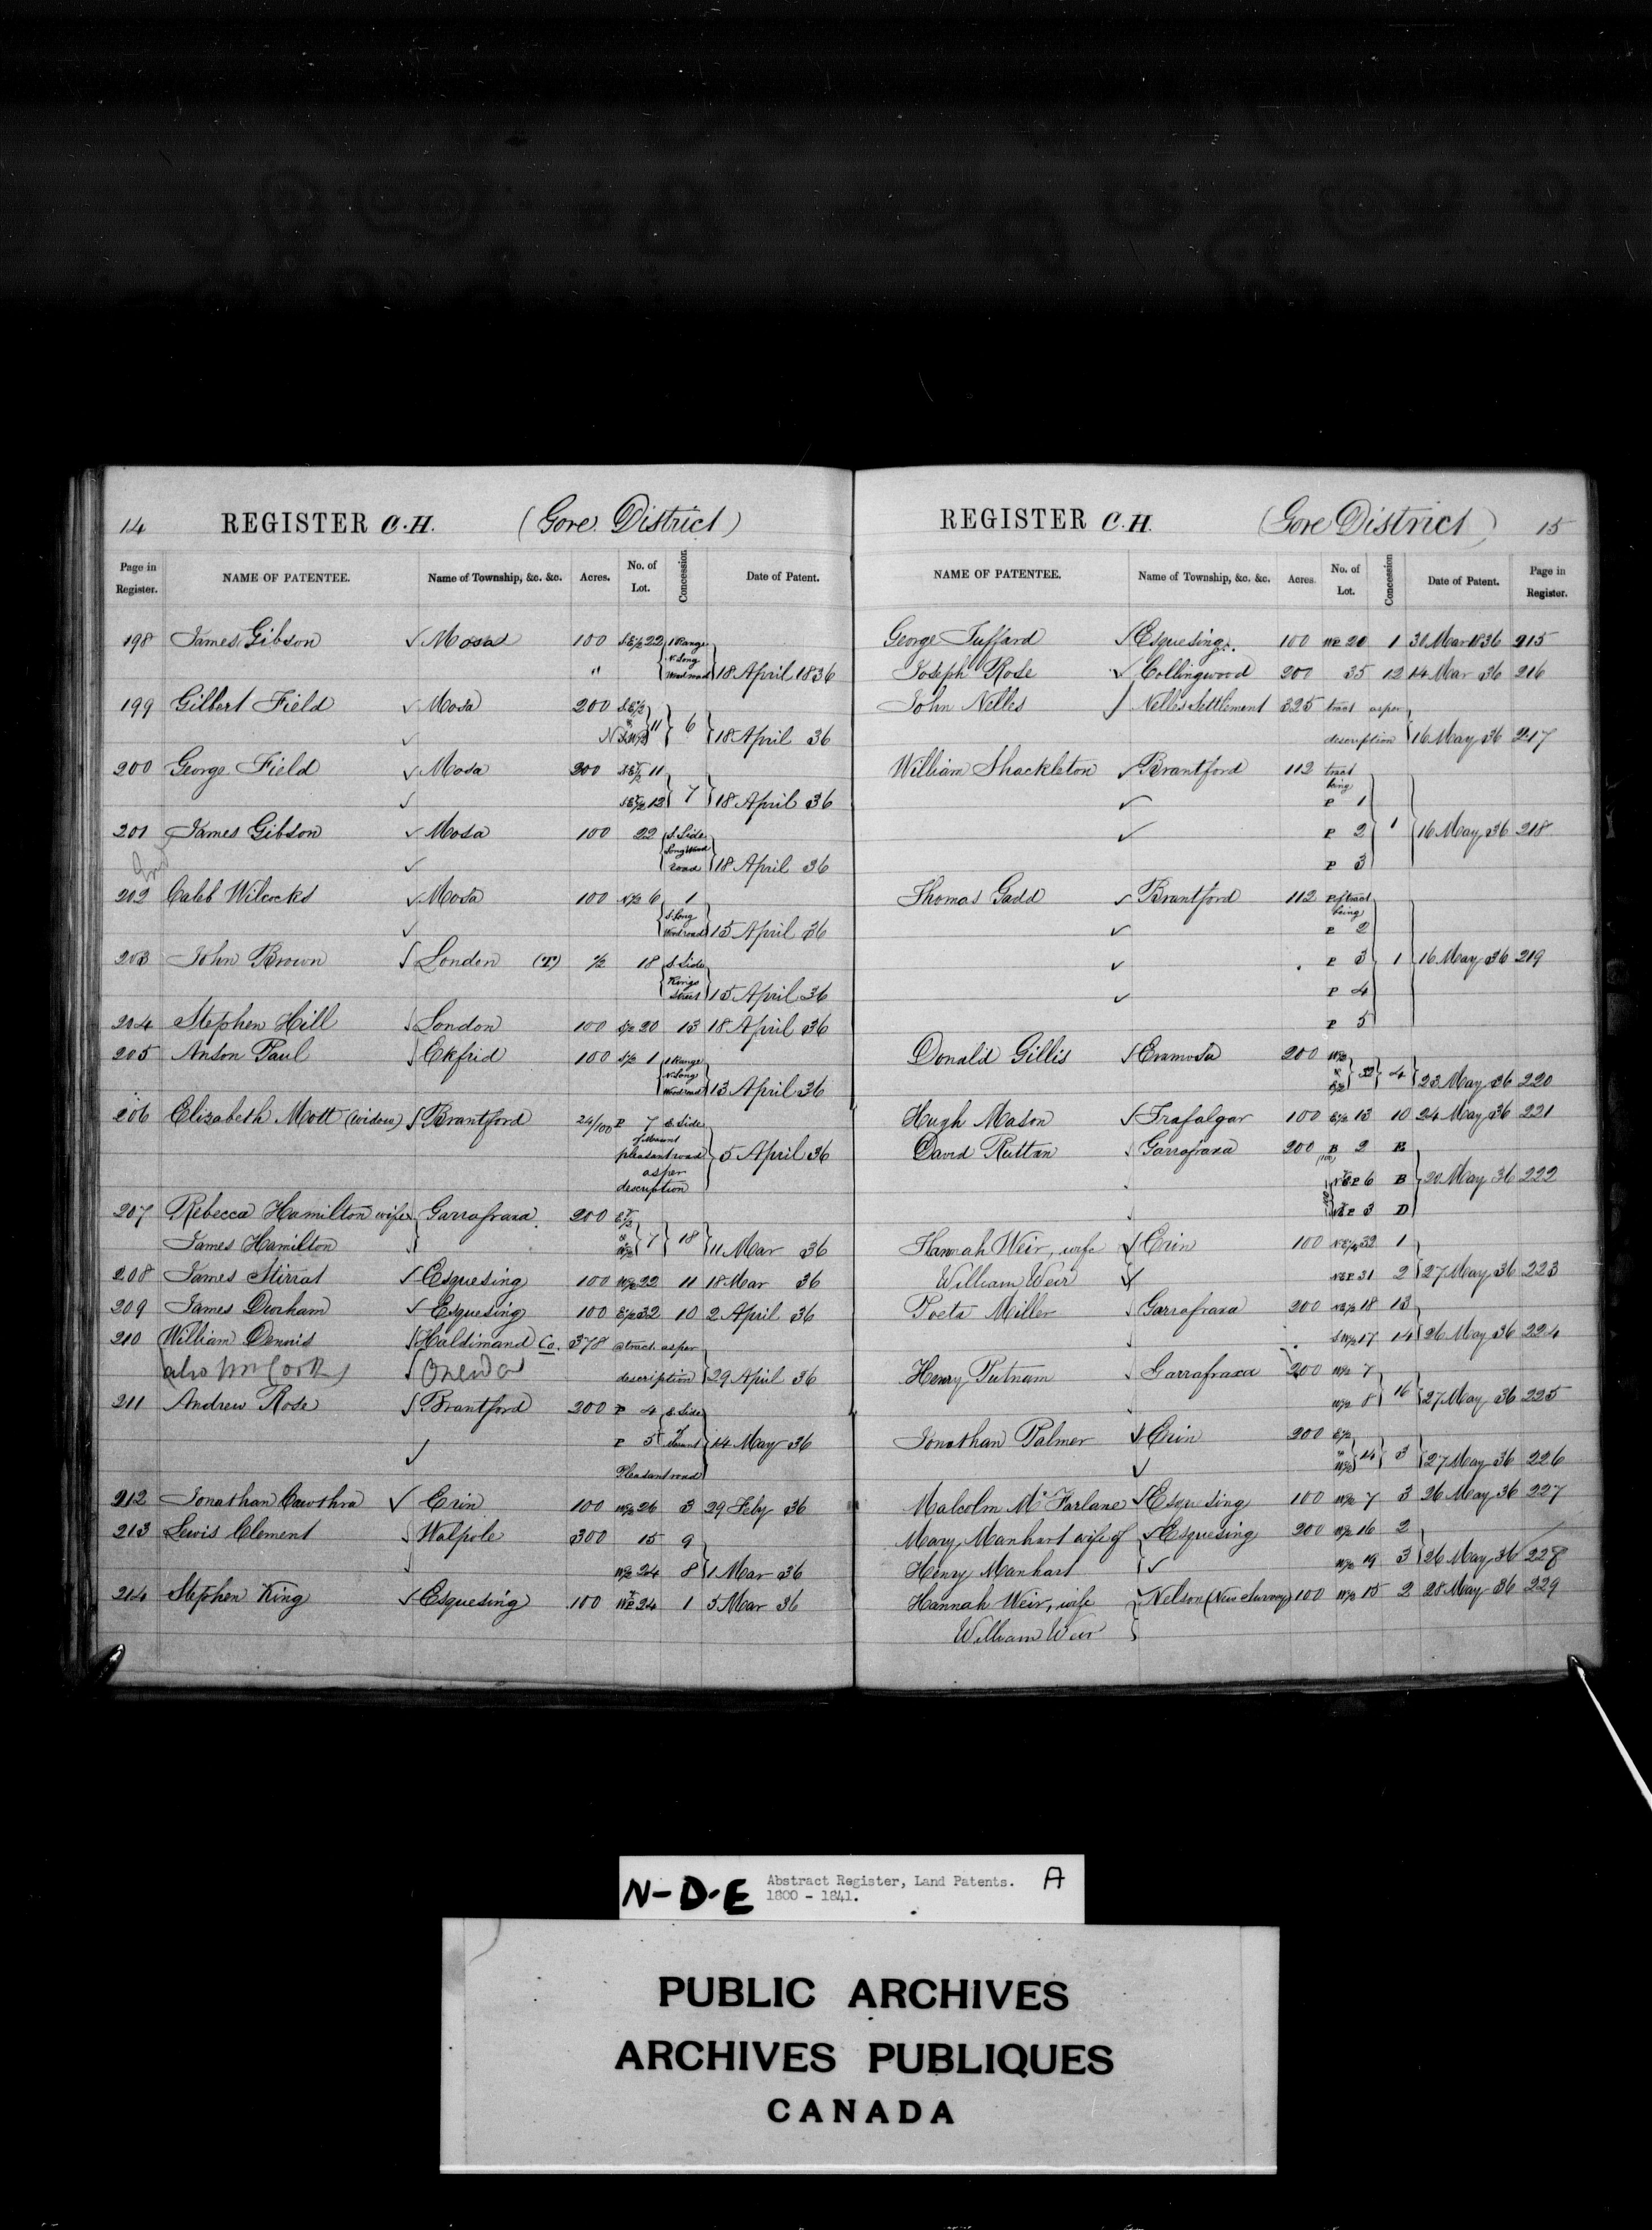 14 REGISTER C.H. (Gore District)
Page in Register. NAME OF PATENTEE. Name of Township, &c. &c. Acres. No. of Lot. Concession. Date of Patent.
198 James Gibson ✓ Mosa 100 S E ½ 22 1 Range
" N. Long Wood road 18 April 1836
199 Gilbert Field ✓ Mosa 200 S E ½
✓ & N 11 6 18 April 36
200 George Field ✓ Mosa 200 S E ½ 11
✓ S E ½ 12 7 18 April 36
201 James Gibson ✓ Mosa 100 22 S. Side
✓ Long Wood road 18 April 36
202 Caleb Wilcocks ✓ Mosa 100 N ½ 6 1
✓ S. Long Wood road 15 April 36
203 John Brown London (T) ½ 18 S. Side
Kings Street 15 April 36
204 Stephen Hill London 100 S ½ 20 13 18 April 36
205 Anson Paul Ekfrid 100 S ½ 1 1 Range
N. Long Wood road 13 April 36
206 Elizabeth Mott (widow) Brantford 24/100 P 7 E. Side
of Mount
pleasant road 5 April 36
as per
description
207 Rebecca Hamilton wife Garrafraxa 200 E ½
James Hamilton & W ½ 7 18 11 Mar 36
208 James Stirrat ✓ Esquesing 100 W ½ 22 11 18 Mar 36
209 James Durham ✓ Esquesing 100 E ½ 32 10 2 April 36
210 William Dennis Haldimand Co. 378 a tract as per
(also Wm Cook) Oneida description 29 April 36
211 Andrew Rose Brantford 200 P 4 E. Side
✓ P 5 of Mount 14 May 36
Pleasant road
212 Jonathan Cawthra ✓ Erin 100 W ½ 26 3 29 Feby 36
213 Lewis Clement Walpole 300 15 9
W ½ 24 8 1 Mar 36
214 Stephen King ✓ Esquesing 100 24 1 5 Mar 36
REGISTER C.H. (Gore District) 15
NAME OF PATENTEE. Name of Township, &c. &c. Acres. No. of Lot. Concession Date of Patent. Page in Register.
George Tuffard ✓ Esquesing 100 20 1 30 Mar 1836 215
Joseph Rose ✓ Collingwood 200 35 12 14 Mar 36 216
John Nelles Nelles Settlement 325 tract as per
description 16 May 36 217
William Shackleton ✓ Brantford 112 tract
being
✓ P 1
✓ P 2 1 16 May 36 218
P 3
Thomas Gadd ✓ Brantford 112 P of tract
being
✓ P 2
✓ P 3 1 16 May 36 219
✓ P 4
P 5
Donald Gillis Eramosa 200 W ½
& E ½ 32 4 23 May 36 220
Hugh Mason Trafalgar 100 E ½ 13 10 24 May 36 221
David Ruttan Garrafraxa 200 2
6 B 20 May 36 222
3 D
Hannah Weir, wife Erin 100 32 1
William Weir 31 2 27 May 36 223
Poeta Miller Garrafraxa 200 N E ½ 18 13
S W ½ 17 14 26 May 36 224
Henry Putnam Garrafraxa 200 W ½ 7
W ½ 8 16 27 May 36 225
Jonathan Palmer Erin 200 E ½
✓ & W ½ 14 3 27 May 36 226
Malcolm McFarlane ✓ Esquesing 100 W ½ 7 3 26 May 36 227
Mary Manhart wife of ✓ Esquesing 200 W ½ 16 2
Henry Manhart ✓ W ½ 19 3 26 May 36 228
Hannah Weir, wife ✓ Nelson (New Survey) 100 W ½ 15 2 28 May 36 229
William Weir
N-D-E Abstract Register, Land Patents. A
1800 - 1841.
PUBLIC ARCHIVES
ARCHIVES PUBLIQUES
CANADA